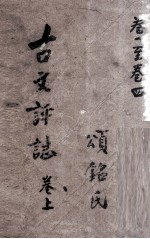 卷一至卷四
頌銘氏
古文評註 卷上